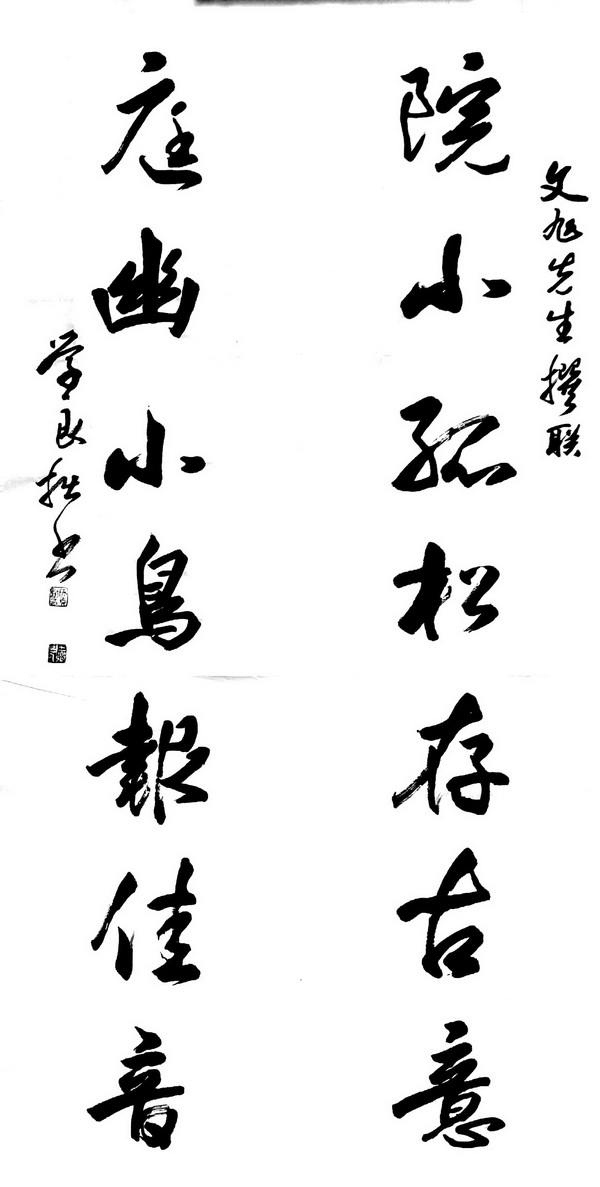 文旭先生撰联
院小孤松存古意
庭幽小鳥報佳音
学良拙书